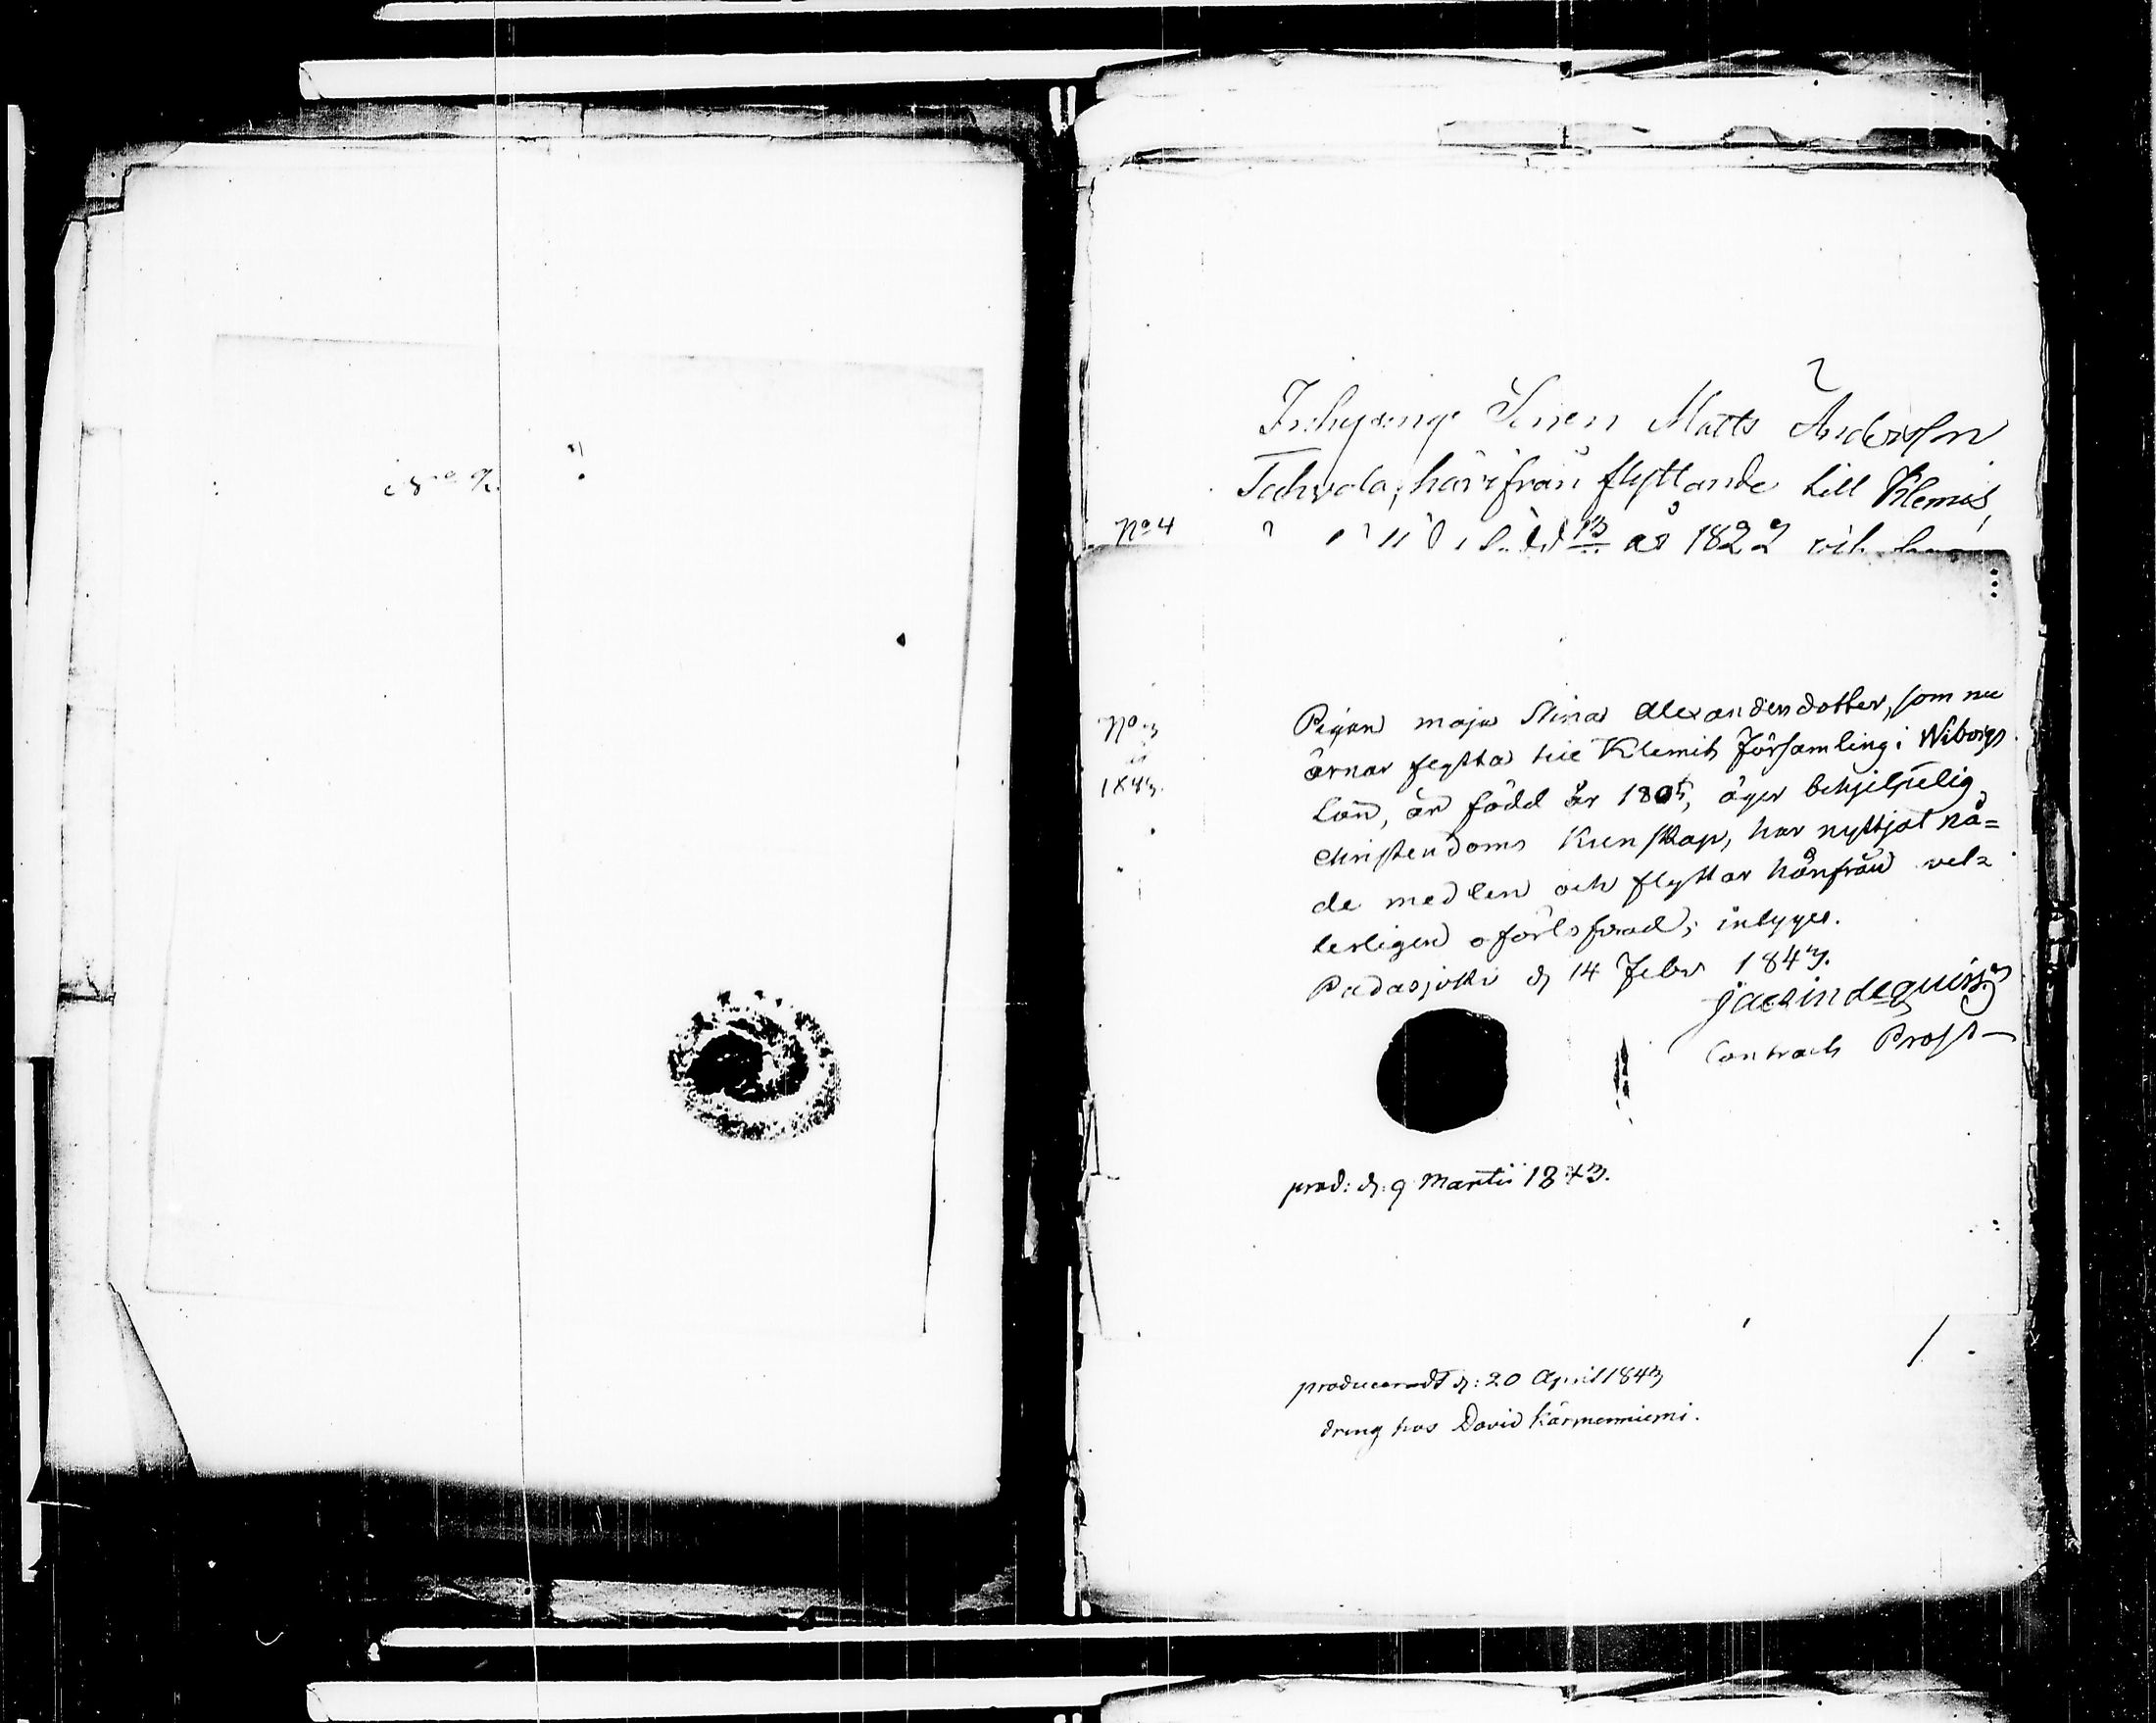 Inhysinge Sonen Matts Andersson
härifrån flyttande till Klemis,
No 4 13 år 1822 och
No 3
år
1843.
Pigan Maja Stina Alexandersdotter, som nu
ärnar flytta till Klemis Församling i Wiborgs
Län, är född år 1805, äger behjelpelig
Christendoms Kunskap, har nyttjat nå=
de medlen och flyttar härifrån vet=
terligen oförlofvad; intyger.
Padasjoki d 14 Febr 1843.
Contracts Prost
prod: d: 9 Martii 1843.
produceradt d: 20 April 1843
dräng hos David Kärmenniemi.